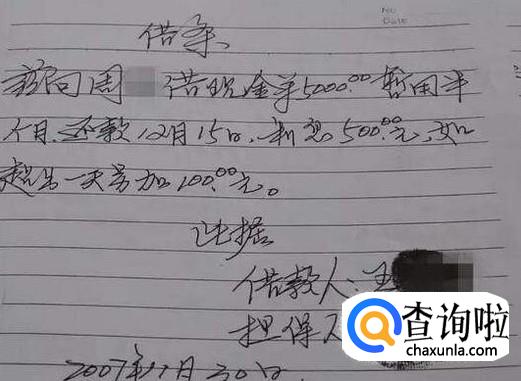 No
Date
借条
兹向周 借现金￥5000.00 暂用半
个月,还款12月15日,利息500.00元,如
超出一天另加100.00元。
此据
借款人:王
担保人
2007年11月30日
查询啦
chaxunla.com